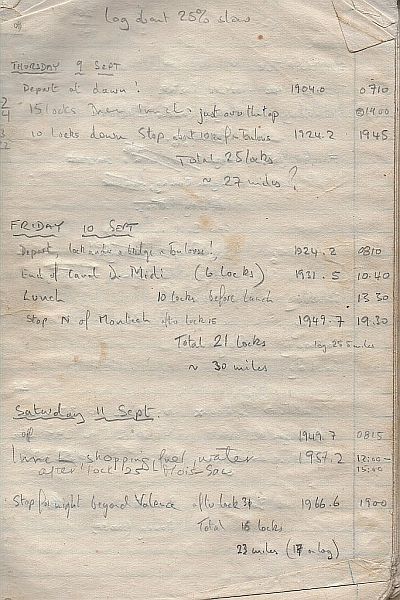 log about 25% slow
off
THURSDAY 9 SEPT
Depart at dawn! 1904.0 0710
15 locks lunch just over the top 1400
10 locks down Stop about 10 km from Toulouse 1924.2 1945
Total 25 locks
~ 27 miles?
FRIDAY 10 SEPT
Depart, lock under a bridge in Toulouse! 1924.2 0810
End of Canal Du Midi (6 locks) 1931.5 10.40
Lunch 10 locks before lunch 13 30
Stop N of Montech after lock 15 1949.7 19.30
Total 21 locks log 25.5 miles
~ 30 miles
Saturday 11 Sept.
off 1949.7 0815
Lunch shopping fuel, water 1957.2 12:00-
after lock 25 Mois-Sac 15:00
Stop for night beyond Valence after lock 31 1966.6 1900
Total 16 locks
23 miles (17 on log)